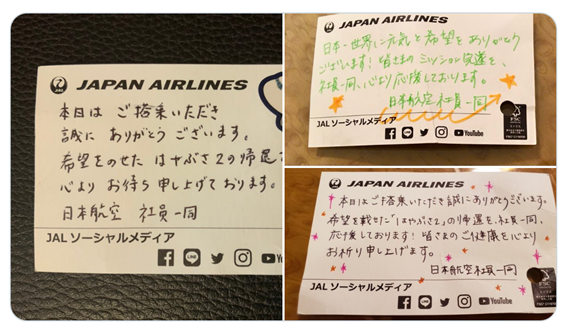 JAPAN AIRLINES
本日は ご搭乗いただき
誠に ありがとう ございます。
希望をのせた はやぶさ2の帰還
心より お待ち申し上げております。
日本航空 社員一同
JALソーシャルメディア
JAPAN AIRLINES
日本、世界に元気と希望をありがとう
ございます! 皆さまのミッション完遂を、
社員一同、心より応援しております。
日本航空社員一同
JALソーシャルメディア
YouTube
FSC
JAPAN AIRLINES
本日はご搭乗いただき誠にありがとうございます。
希望を載せた「はやぶさ2」の帰還を、社員一同、
応援しております! 皆さまのご健康を心より
お祈り申し上げます。
日本航空社員一同
JALソーシャルメディア
YouTube